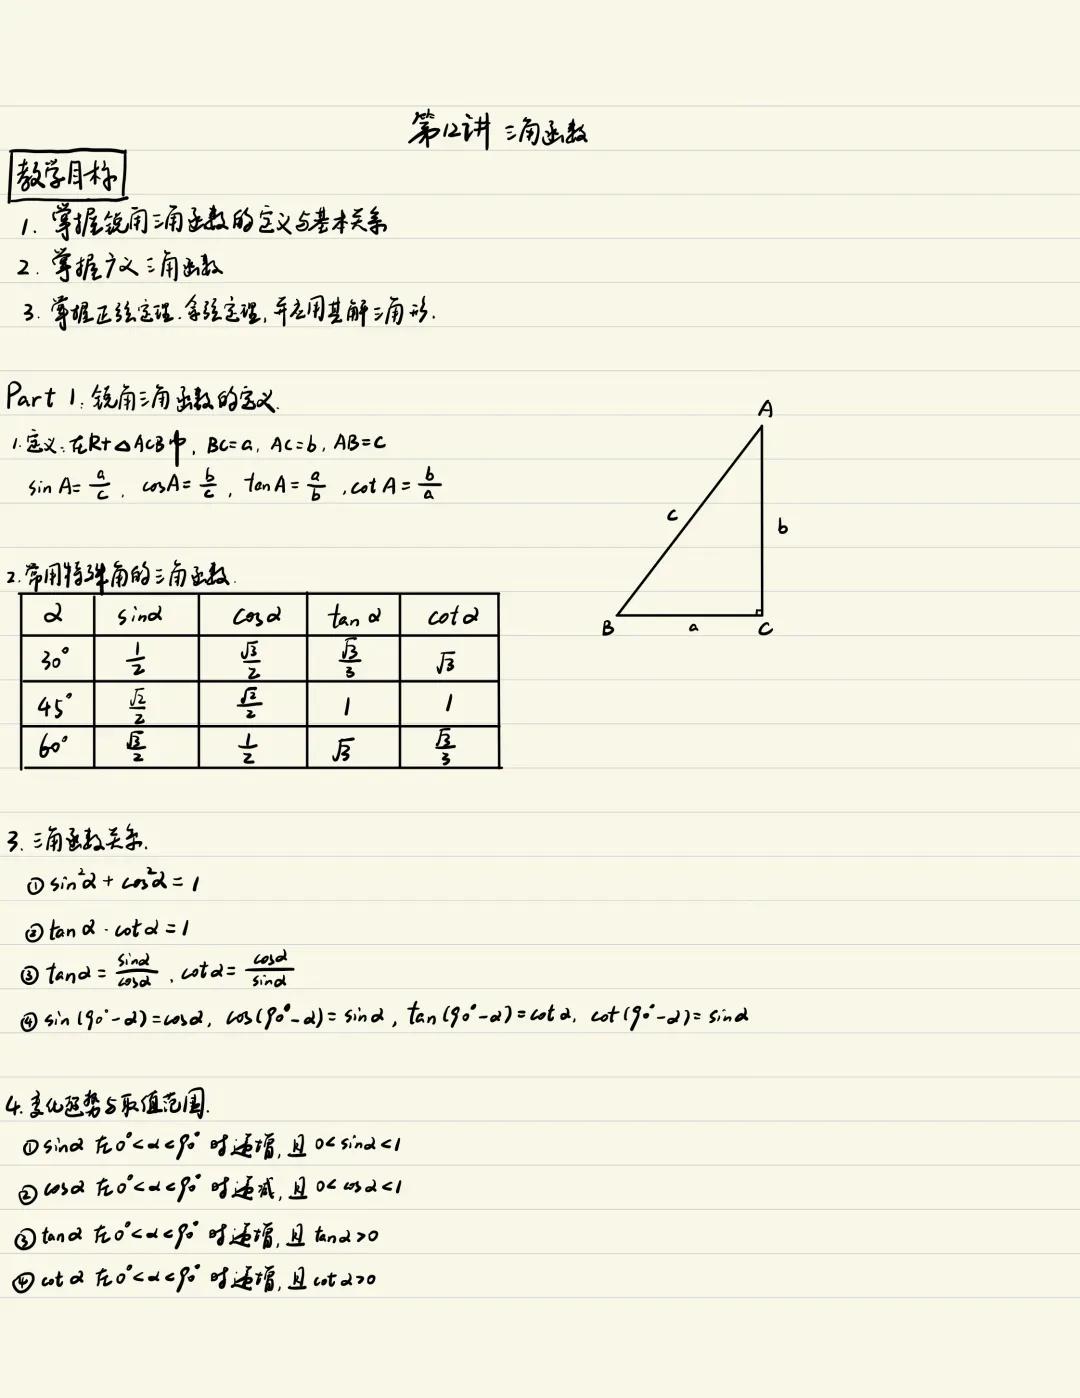 第12讲 三角函数
教学目标
1. 掌握锐角三角函数的定义与基本关系
2. 掌握广义三角函数
3. 掌握正弦定理.余弦定理,并应用其解三角形.
Part 1. 锐角三角函数的定义.
1. 定义: 在Rt△ACB中, BC=a, AC=b, AB=c
sin A=a/c, cosA=b/c, tanA=a/b, cot A=b/a
A
c
b
B a C
2.常用特殊角的三角函数.
α sinα cosα tan α cotα
30° 1/2 √3/2 √3/3 √3
45° √2/2 √2/2 1 1
60° √3/2 1/2 √3 √3/3
3. 三角函数关系.
① sin²α + cos²α = 1
② tan α · cotα = 1
③ tanα = sinα/cosα, cotα = cosα/sinα
④ sin(90°-α)=cosα, cos(90°-α)=sinα, tan(90°-α)=cotα, cot(90°-α)=sinα
4.变化趋势与取值范围.
① sinα 在0°<α<90° 时递增, 且 0<sinα<1
② cosα 在0°<α<90° 时递减, 且 0<cosα<1
③ tanα 在0°<α<90° 时递增, 且 tanα>0
④ cotα 在0°<α<90° 时递增, 且 cotα>0